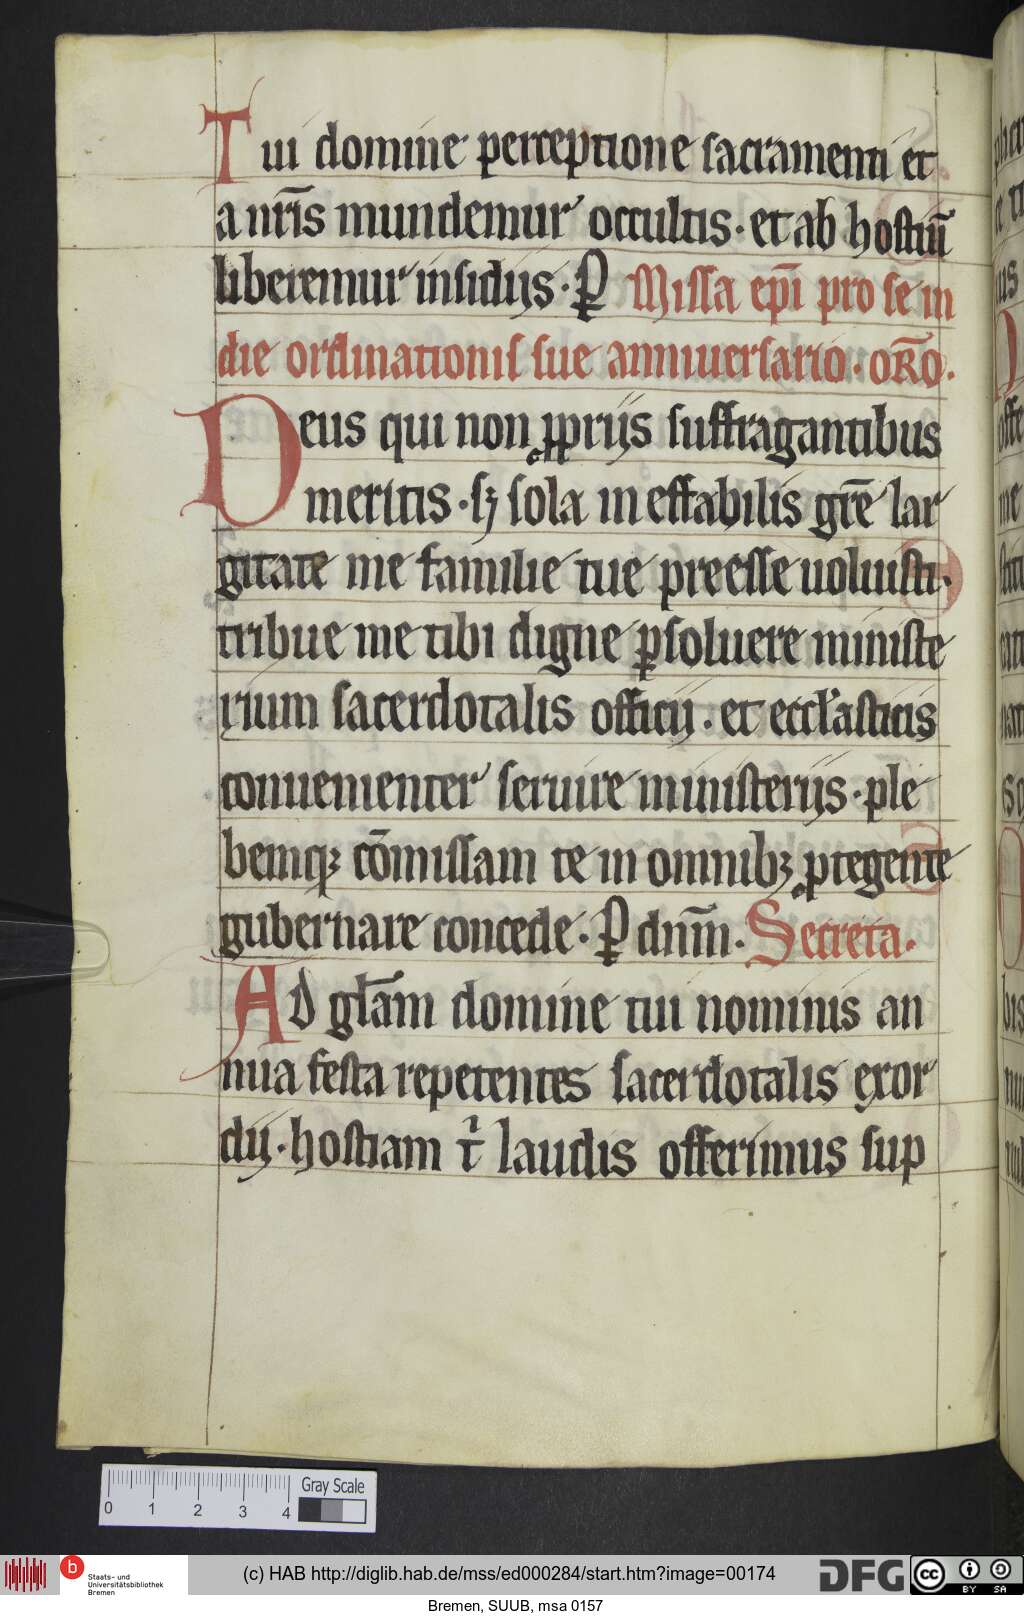 Tui domine perceptione sacramenti et
a nr̄is mundemur occultis · et ab hostiū
liberemur insidijs · P̲ Missa ep̄i pro se in
die ordinationis sue anniuersario · oR̄o ·
Deus qui non ꝓprijs suffragantibus
meritis · sꝫ sola ineffabilis gr̄e lar
gitate me familie tue preesse uoluisti ·
tribue me tibi digne ꝑsoluere ministe
rium sacerdotalis officij · et eccl'asticis
conuenienter seruire ministerijs · ple
bemqꝫ cōmissam te in omnibꝫ ꝓtegente
gubernare concede · P̲ dnm̄ · Secreta ·
AD gl̄am domine tui nominis an
nua festa repetentes sacerdotalis exor
dij · hostiam t᷑ laudis offerimus sup
0 1 2 3 4
Gray Scale
b
Staats- und
Universitätsbibliothek
Bremen
(c) HAB http://diglib.hab.de/mss/ed000284/start.htm?image=00174
DFG
cc
BY SA
Bremen, SUUB, msa 0157